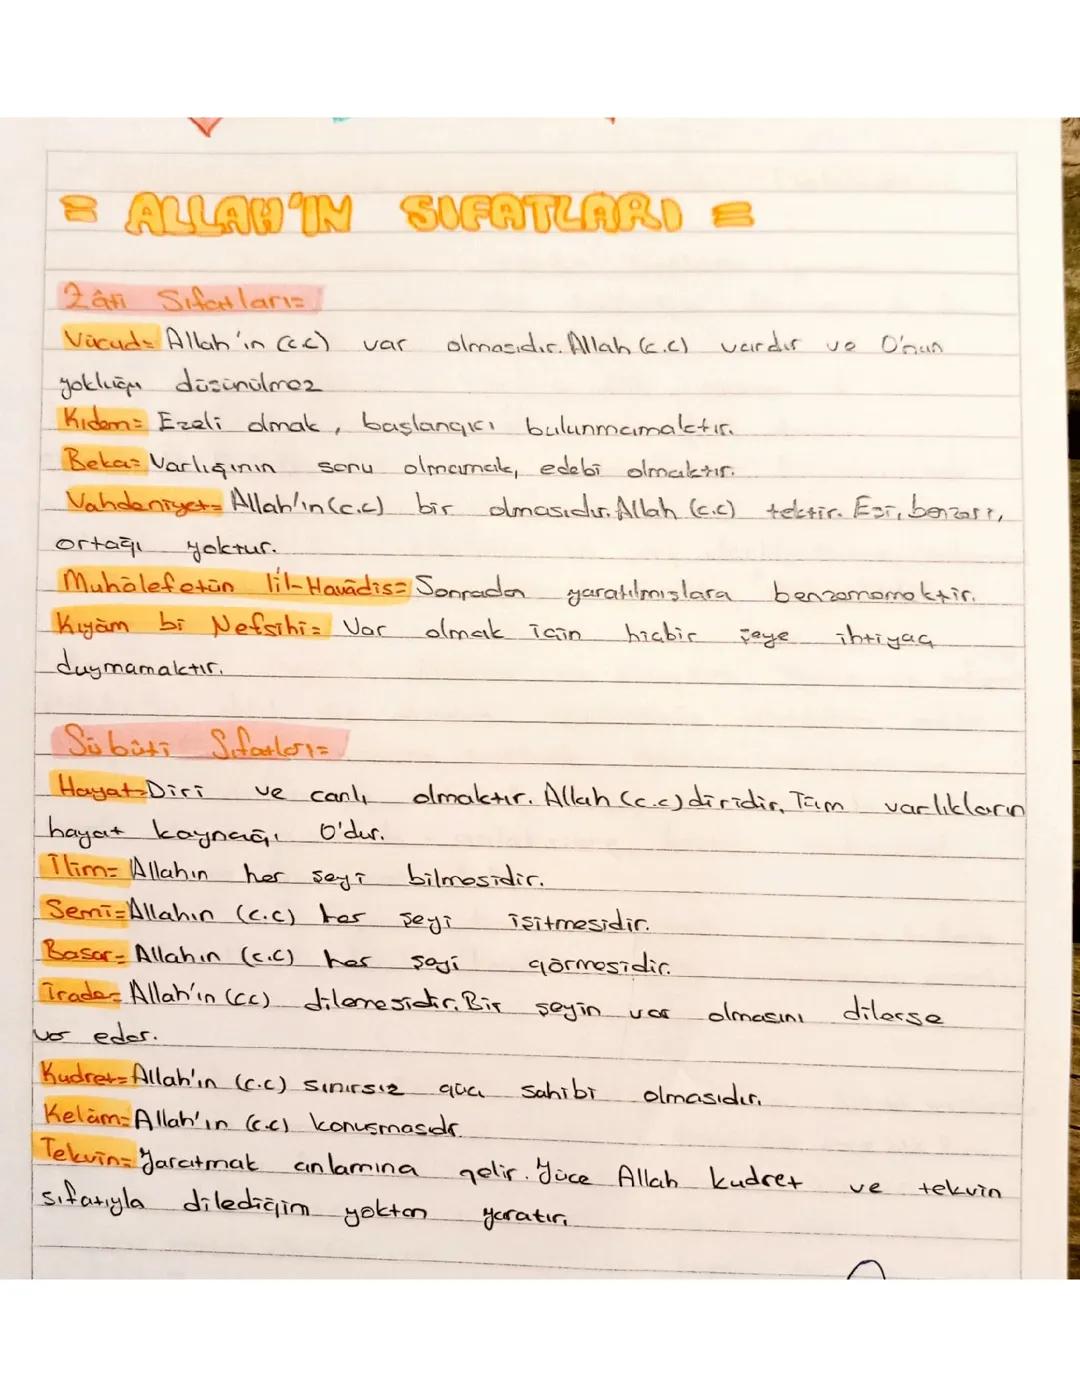 = ALLAH'IN SIFATLARI =
Zâti Sıfatları=
Vücud= Allah'ın (c.c) var olmasıdır. Allah (c.c) vardır ve O'nun
yokluğu düşünülmez
Kıdem= Ezeli olmak, başlangıcı bulunmamaktır.
Beka= Varlığının sonu olmamak, edebi olmaktır.
Vahdaniyet= Allah'ın (c.c) bir olmasıdır. Allah (c.c) tektir. Eşi, benzeri,
ortağı yoktur.
Muhâlefetün lil-Havâdis= Sonradan yaratılmışlara benzememektir.
Kıyâm bi Nefsihi= Var olmak için hiçbir şeye ihtiyaç
duymamaktır.
Sübûti Sıfatları=
Hayat=Diri ve canlı olmaktır. Allah (c.c) diridir. Tüm varlıkların
hayat kaynağı O'dur.
İlim= Allahın her şeyi bilmesidir.
Semi=Allahın (c.c) her şeyi işitmesidir.
Basar= Allahın (c.c) her şeyi görmesidir.
İrade= Allah'ın (cc) dilemesidir. Bir şeyin var olmasını dilerse
var eder.
Kudret=Allah'ın (c.c) sınırsız gücü sahibi olmasıdır.
Kelâm=Allah'ın (c.c) konuşmasıdr.
Tekvin= Yaratmak anlamına gelir. Yüce Allah kudret ve tekvin
sıfatıyla dilediğim yoktan yaratır.